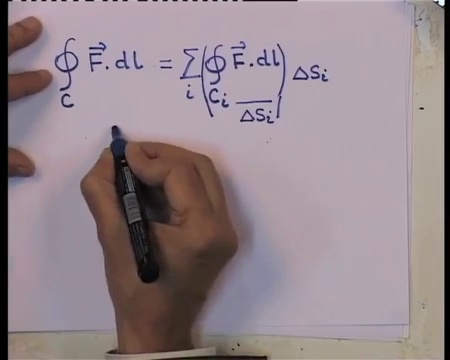 ∮_C F⃗ . dl = Σ_i ( ∮_{C_i} F⃗ . dl / ΔS_i ) ΔS_i